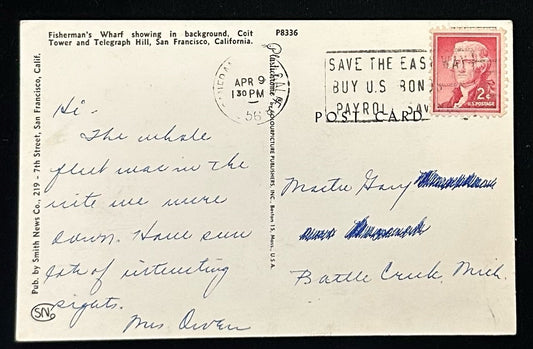 Fisherman's Wharf showing in background, Coit
Tower and Telegraph Hill, San Francisco, California.
P8336
Pub. by Smith News Co., 219 - 7th Street, San Francisco, Calif.
SN
Hi -
The whole
fleet was in the
nite we were
down. Have seen
lots of interesting
sights.
Mrs Owen
Plastichrome
COLOURPICTURE PUBLISHERS, INC. Boston 15, Mass., U.S.A.
CAL
APR 9
1 30 PM
56
SAVE THE EASY WAY
BUY U.S. BON
PAYROL SAV
2¢
U.S. POSTAGE
POST CARD
Master Gary
Battle Creek, Mich.